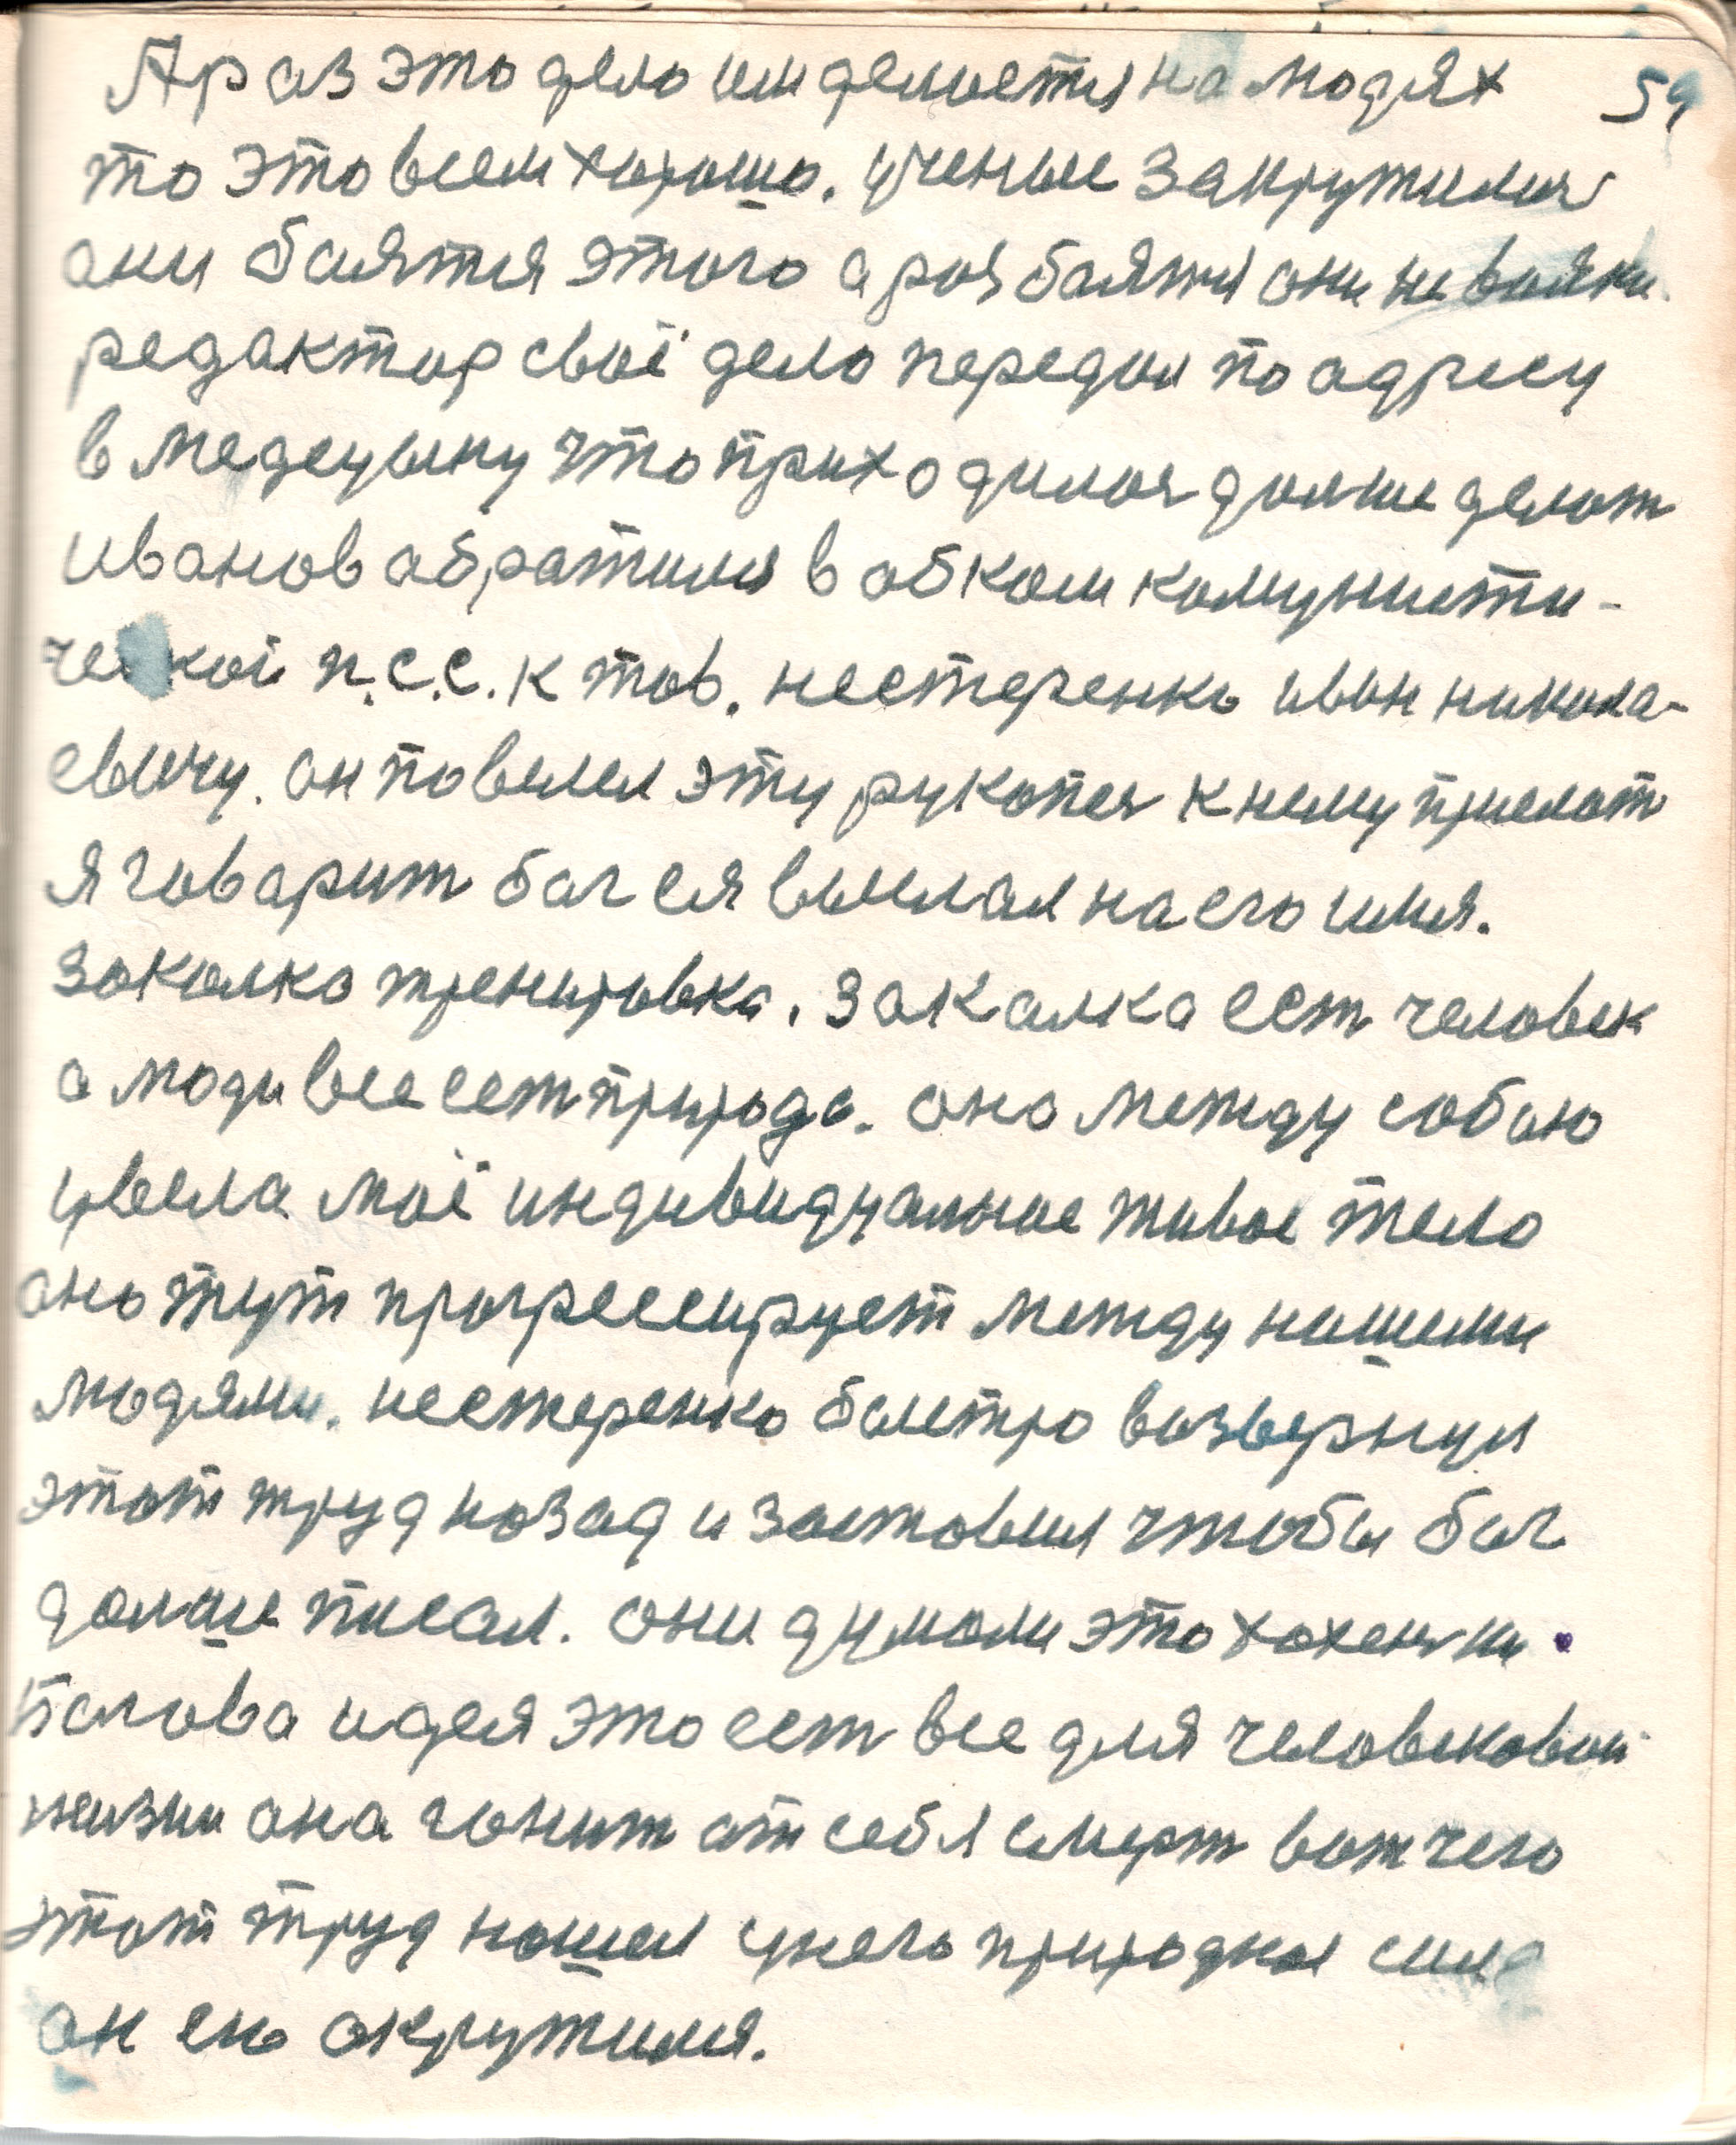 А раз это дело им делиется на людях 59
то это всем хорошо. ученые закружилися
они баятся этого а раз баятся они не вояки.
редактор своё дело передал по адресу
в медецыну что приходилося дальше делат
иванов абратился в обком комунисти-
ческой п.С.С. к тов. нестеренко иван никола-
евычу. он повелел эту рукопея к нему прислат
я говарит бог ея выслал на его имя.
закалка тренировка. закалка ест человек
а люди все ест природа. она между собою
ввела моё индивидуальное живое тело
оно тут прогрессирует между нашими
людями. нестеренко быстро возвернул
этот труд назад и заставил чтобы бог
дальше писал. они думали это хахеньки.
Паршека идея это ест все для человековой
жизни она гонит от себя смерт вот чего
этот труд нашел у него природная сила
он ею окружился.